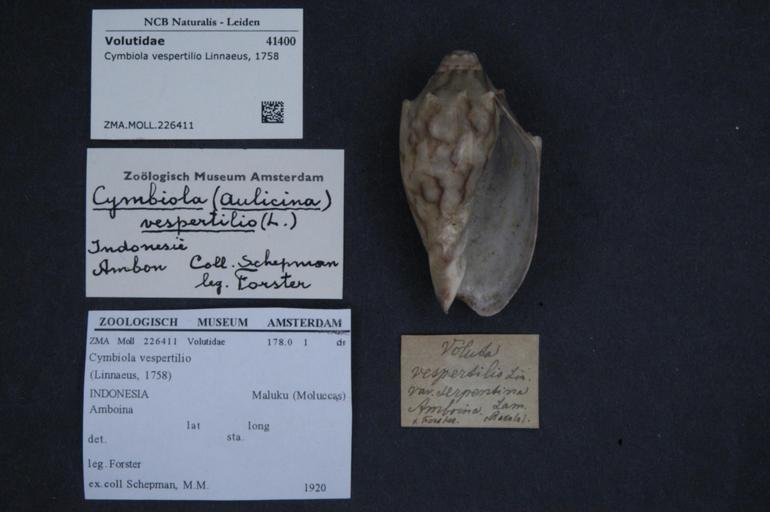 NCB Naturalis - Leiden
Volutidae 41400
Cymbiola vespertilio Linnaeus, 1758
ZMA.MOLL.226411
Zoölogisch Museum Amsterdam
Cymbiola (Aulicina)
vespertilio (L.)
Indonesië
Ambon Coll. Schepman
leg. Forster
ZOOLOGISCH MUSEUM AMSTERDAM
ZMA Moll 226411 Volutidae 178.0 1 dr
Cymbiola vespertilio
(Linnaeus, 1758)
INDONESIA Maluku (Moluccas)
Amboina
lat long
det. sta.
leg. Forster
ex. coll Schepman, M.M. 1920
Voluta
vespertilio Lin.
var. serpentina
Amboina. Lam.
Forster.